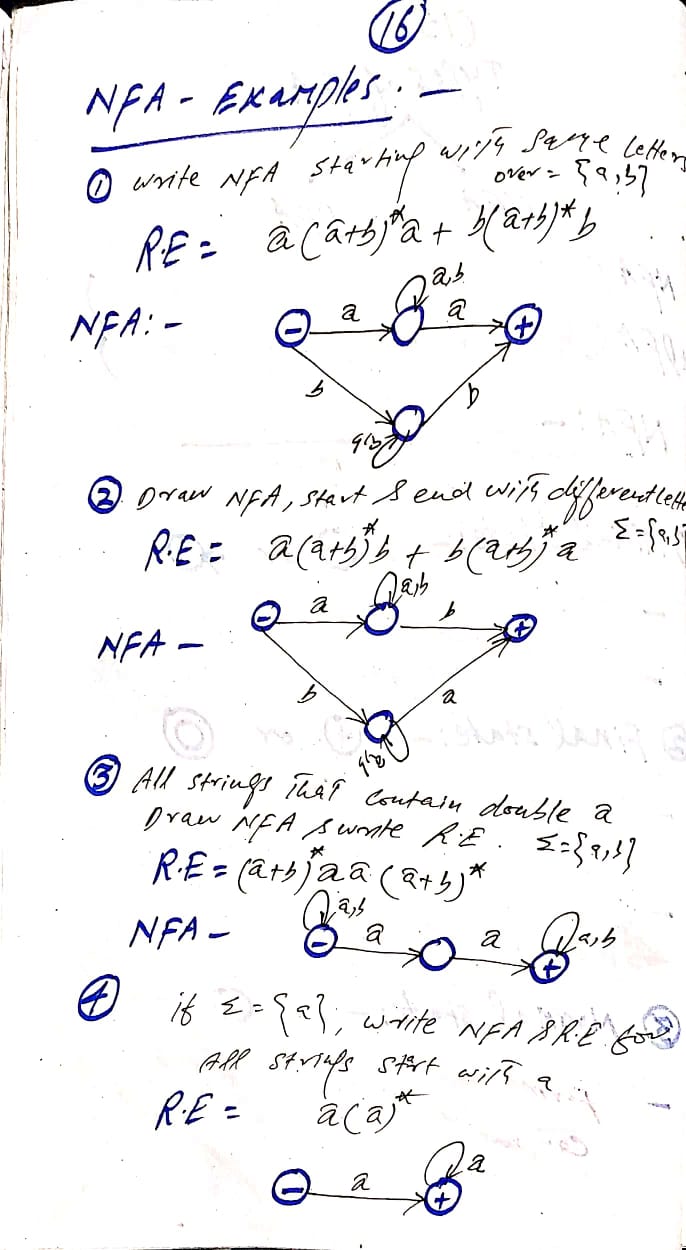 16
NFA - Examples. -
① write NFA starting with same letters
over = {a,b}
R.E = a(a+b)*a + b(a+b)*b
NFA:-
a,b
a
a
b
b
a,b
② Draw NFA, start & end with different lette
R.E = a(a+b)*b + b(a+b)*a Σ={a,b}
a,b
a
b
NFA -
b
a
a,b
③ All strings That contain double a
Draw NFA & write R.E. Σ={a,b}
R.E = (a+b)*aa(a+b)*
a,b
NFA - - a a + a,b
④ if Σ={a}, write NFA & R.E for
All strings start with a
R.E = a(a)*
- a + a